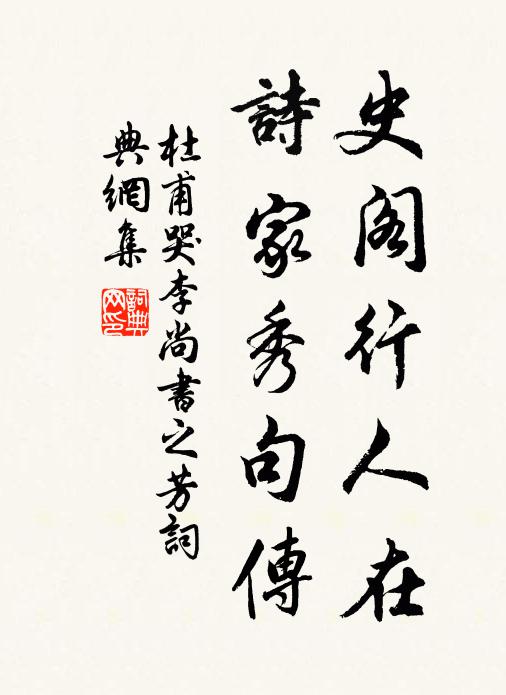 史阁行人在
詩家秀句傳
杜甫哭李尚書之芳詞
典網集
詞典网印